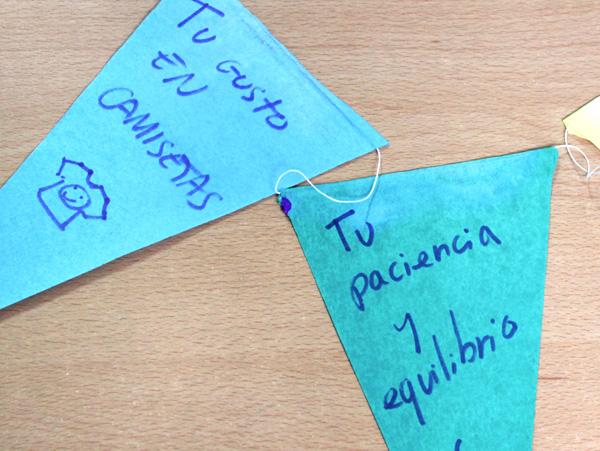 Tu GUSTO
EN
CAMISETAS
Tu
paciencia
y
equilibrio